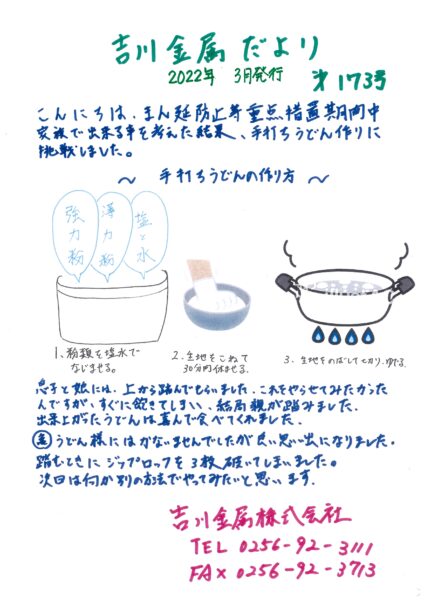 吉川金属だより
2022年 3月発行 第173号
こんにちは、まん延防止等重点措置期間中
家族で出来る事を考えた結果、手打ちうどん作りに
挑戦しました。
～ 手打ちうどんの作り方 ～
強力粉
薄力粉
塩と水
1. 粉類を塩水で
なじませる。
2. 生地をこねて
30分間休ませる。
3. 生地をのばしてカット、ゆでる。
息子と娘には、上から踏んでもらいました。これをやらせてみたかった
んですが、すぐに飽きてしまい、結局親が踏みました。
出来上がったうどんは喜んで食べてくれました。
うどん様にはかないませんでしたが良い思い出になりました。
踏むときにジップロックを3枚破いてしまいました。
次回は何か別の方法でやってみたいと思います。
吉川金属株式会社
TEL 0256-92-3111
FAX 0256-92-3713